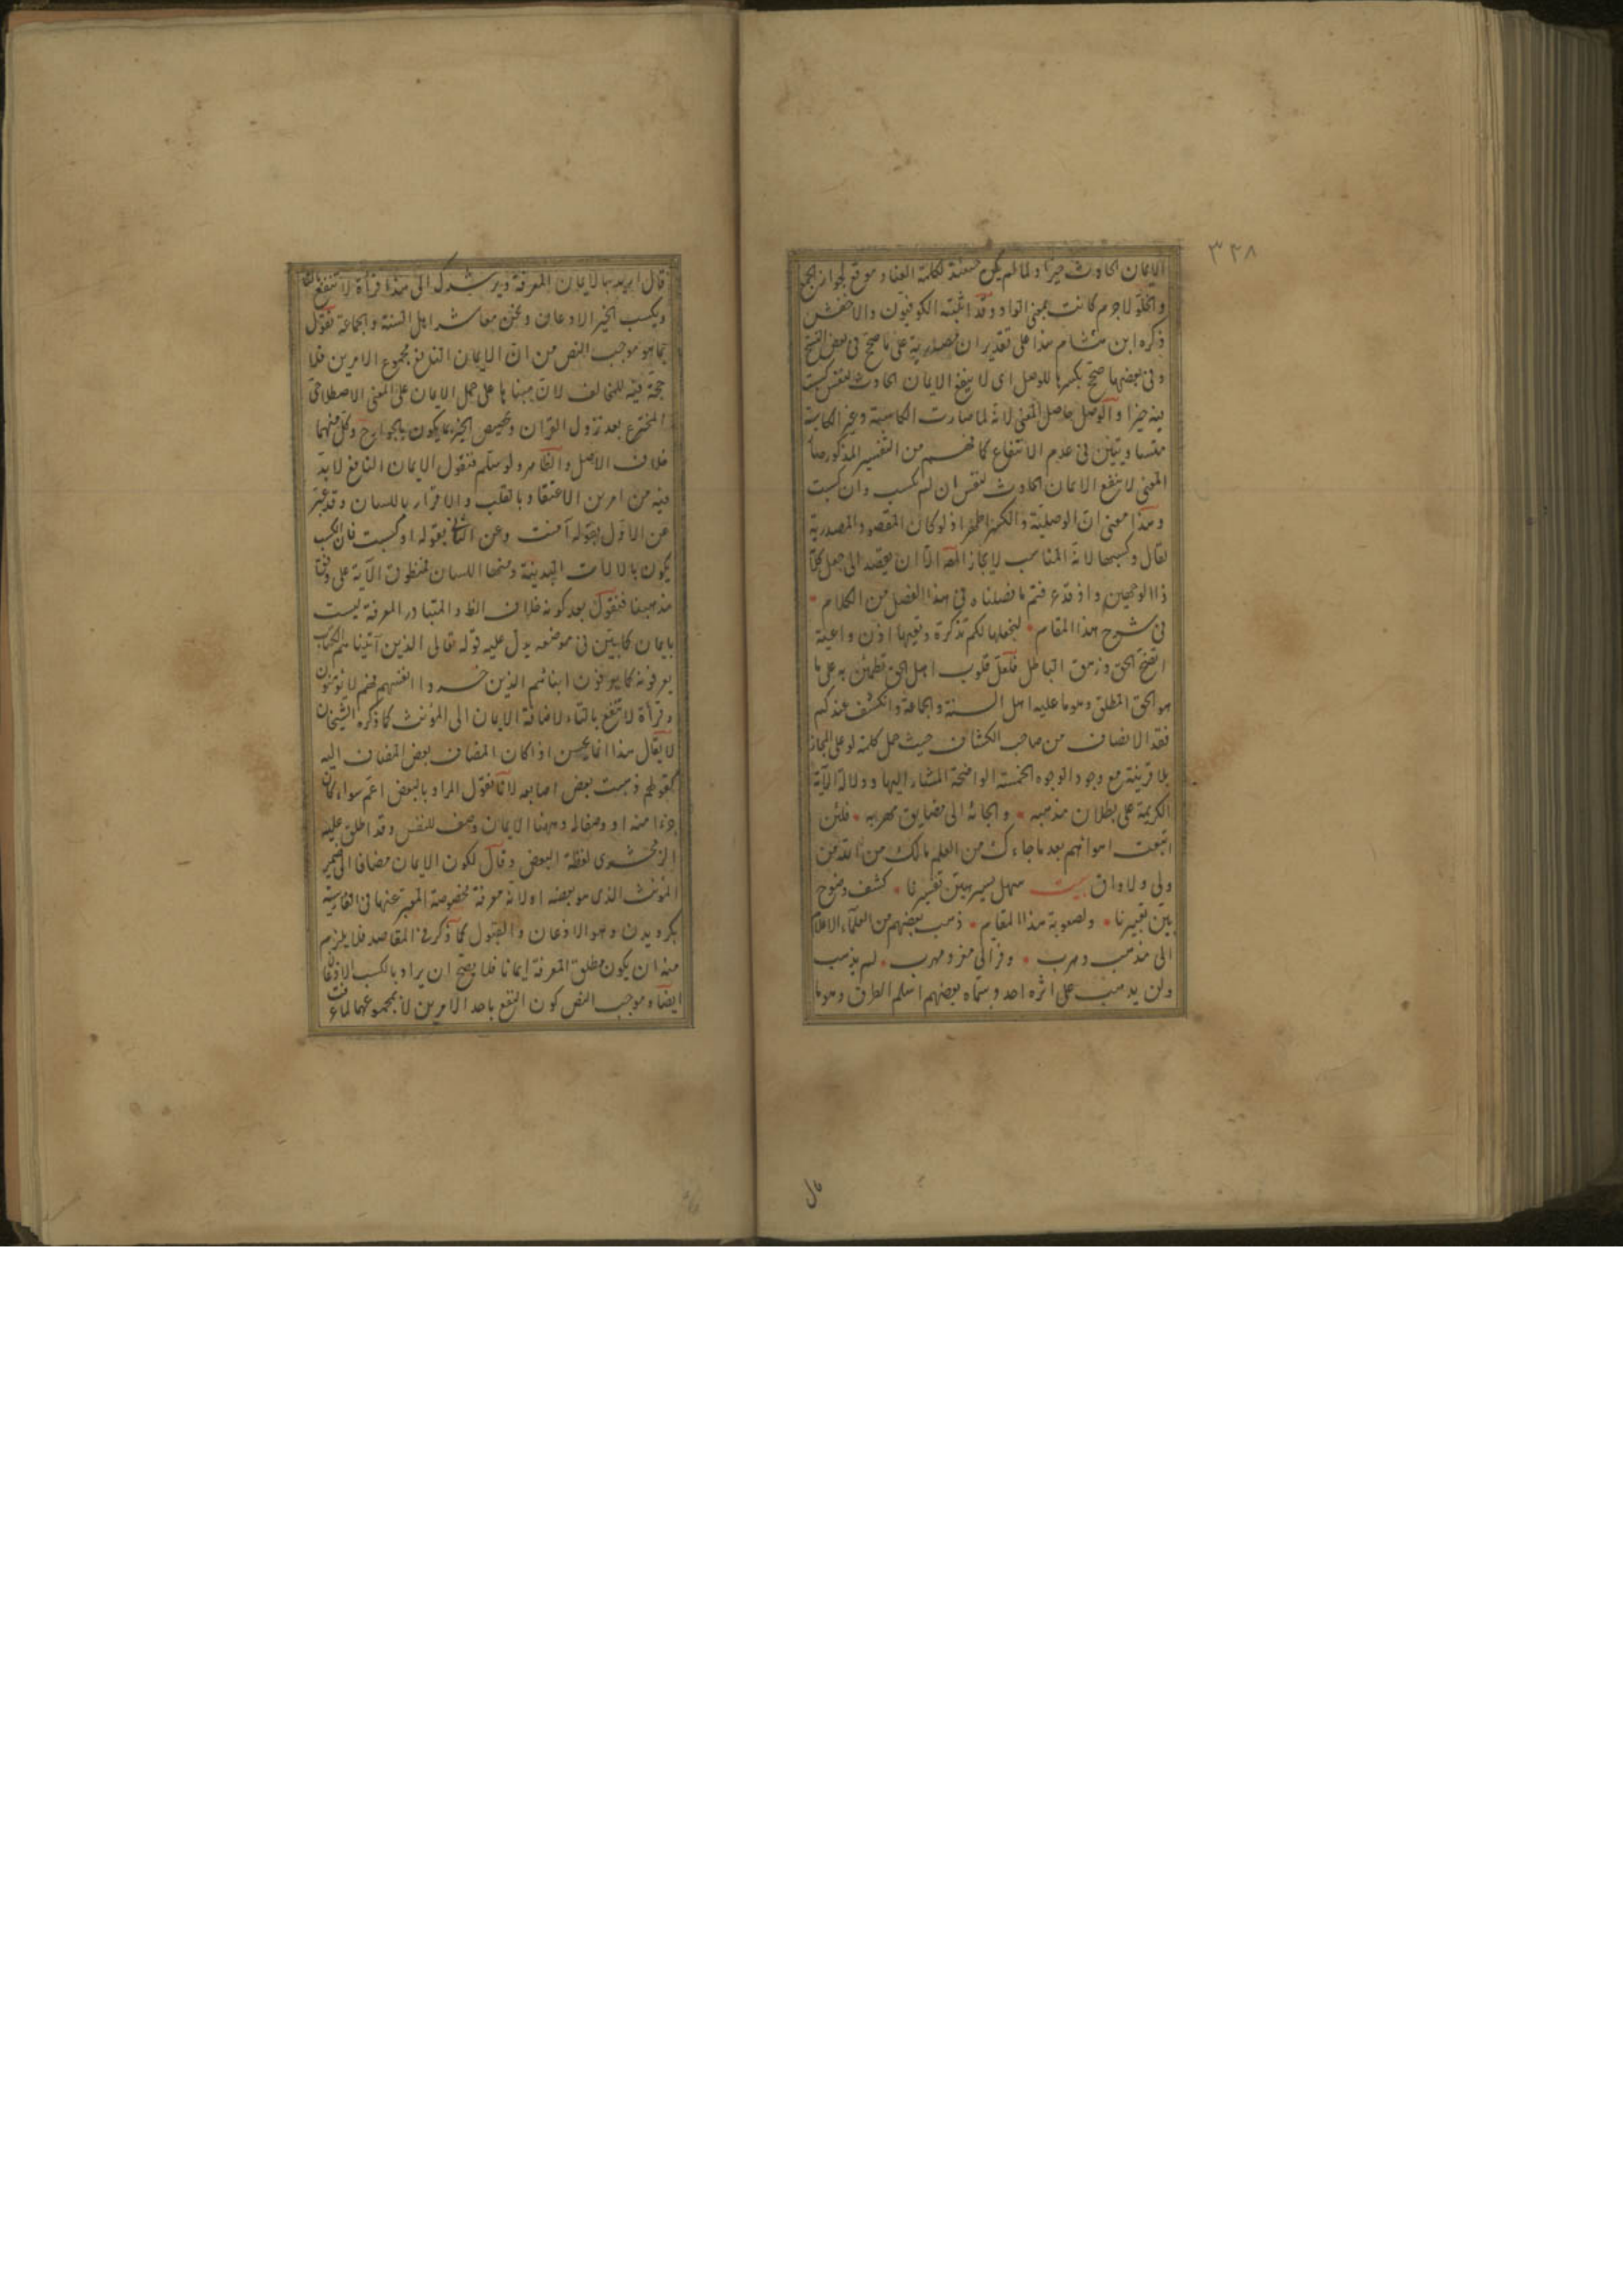 ٣٢٨
الايمان الحادث خيرا ولما لم يكن حقيقة لكلمة العناد موقع لجواز الجمع
والخلو لاجرم كانت بمعنى الواو وقد اثبته الكوفيون والاخفش
ذكره ابن هشام هذا على تقدير ان مصدرية على ما صح في بعض النسخ
وفي بعضها صح بكسرها للوصل اى لا ينفع الايمان الحادث لنفس كسبت
فيه خيرا والوصل حاصل المعنى لانه لما صارت الكاسبة وغير الكاسبة
متساويتين في عدم الانتفاع كما فهم من التفسير المذكور صار
المعنى لا ينفع الايمان الحادث لنفس ان لم تكسب وان كسبت
وهذا معنى ان الوصلية والكسر اظهر اذ لو كان المقصود المصدرية
لقال وكسبها لانه المناسب لايجاز القصر الا ان يقصد الى جعل كلامه
ذا الوجهين واذ قد تم ما فصلناه في هذا الفصل من الكلام
في شرح هذا المقام لنجعلها لكم تذكرة وتعيها اذن واعية
اتضح الحق وزهق الباطل فلعل قلوب اهل الحق تطمئن به على ما
هو الحق المطلق وهو ما عليه اهل السنة والجماعة وانكشف عندكم
فقد الانصاف من صاحب الكشاف حيث حمل كلمة او على المجاز
بلا قرينة مع وجود الوجوه الخمسة الواضحة المشار اليها ودلالة الآية
الكريمة على بطلان مذهبه والجائه الى مضايق مهربه فلئن
اتبعت اهوائهم بعد ما جاءك من العلم مالك من الله من
ولي ولا واق بيت سهل يسير بين تفسيرنا كشف وضوح
بين تعبيرنا ولصعوبة هذا المقام ذهب بعضهم من العلماء الاعلام
الى مذهب ومهرب وفر الى مفر ومهرب لم يذهب
ولن يذهب على اثره احد وسماه بعضهم اسلم الطرق وهو ما
قال
قال اريد بالايمان المعرفة ويرشدك الى هذا قراءة لا تنفع بالتاء
وبكسب الخير الاذعان ونحن معاشر اهل السنة والجماعة نقول
بما هو موجب النص من ان الايمان النافع مجموع الامرين فلا
حجة فيه للمخالف لان مبناها على حمل الايمان على المعنى الاصطلاحي
المخترع بعد نزول القرآن وتخصيص الخير بما يكون بالجوارح وكل منهما
خلاف الاصل والظاهر ولو سلم فنقول الايمان النافع لا بد
فيه من امرين الاعتقاد بالقلب والاقرار باللسان وقد عبر
عن الاول بقوله آمنت وعن الثاني بقوله او كسبت فان الكسب
يكون بالآلات البدنية ومنها اللسان فمنطوق الآية على وفق
مذهبنا فنقول بعد كونه خلاف الظ والمتبادر المعرفة ليست
بايمان كما بين في موضعه يدل عليه قوله تعالى الذين آتيناهم الكتاب
يعرفونه كما يعرفون ابنائهم الذين خسروا انفسهم فهم لا يؤمنون
وقرأة لا تنفع بالتاء لاضافة الايمان الى المؤنث كما ذكره الشيخان
لا يقال هذا انما يحسن اذا كان المضاف بعض المضاف اليه
كقولهم ذهبت بعض اصابعه لانا نقول المراد بالبعض اعم سواء كان
جزءا منه او وصفا له وههنا الايمان وصف للنفس وقد اطلق عليه
الزمخشري لفظة البعض وقال لكون الايمان مضافا الى ضمير
المؤنث الذي هو بعضه اه لانه معرفة مخصوصة المعبر عنها في الفارسية
بكرويدن وهو الاذعان والقبول كما ذكر في المقاصد فلا يلزم
منه ان يكون مطلق المعرفة ايمانا فلا يصح ان يراد بالكسب الاذعان
ايضا وموجب النص كون النفع باحد الامرين لا بمجموعهما